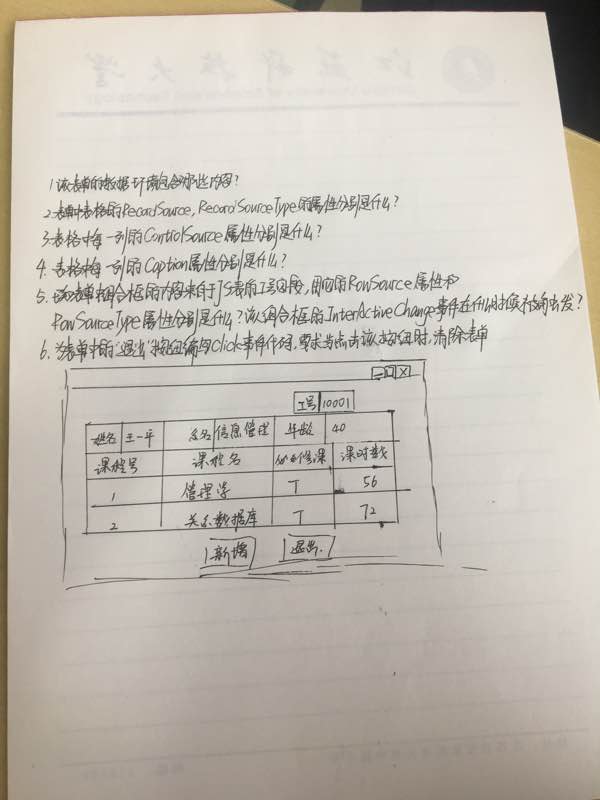 1.该表单的数据环境包含哪些内容?
2.表单中表格的RecordSource, RecordSourceType的属性分别是什么?
3.表格中每一列的ControlSource属性分别是什么?
4.表格中每一列的Caption属性分别是什么?
5.如表单组合框的内容来自于JS表的工号字段,则它的RowSource属性和
RowSourceType属性分别是什么?该组合框的InterActiveChange事件在什么时候被触发?
6.为表单中的"退出"按钮编写Click事件代码,要求当点击该按钮时,清除表单
工号 10001
姓名 王一平 系名 信息管理 年龄 40
课程号 课程名 必修课 课时数
1 管理学 T 56
2 关系数据库 T 72
新增 退出